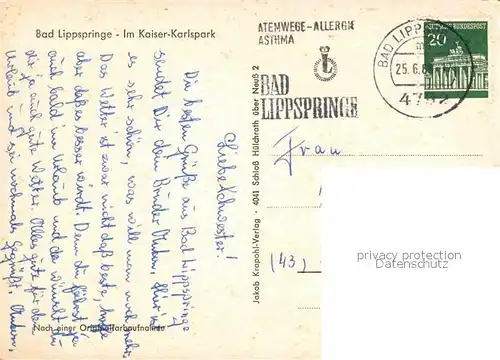 Bad Lippspringe - Im Kaiser-Karlspark
ATEMWEGE-ALLERGIE
ASTHMA
L
BAD
LIPPSPRINGE
BAD LIPP
25.6.6
4792
20
DEUTSCHE BUNDESPOST
Liebe Schwester!
Die besten Grüße aus Bad Lippspringe
sendet Dir Dein Bruder Anton. Hier ist
es sehr schön, was will man noch mehr.
Das Wetter ist zwar nicht daß beste, hoffe
aber daß es besser wird. Denn du fährst ja
auch bald in Urlaub und da wünscht du
dir ja auch gute Wetter. Alles gute für den
Urlaub und sei nochmals Gegrüßt. Anton.
Frau
(43)
Jakob Krapohl-Verlag · 4041 Schloß Hülchrath über Neuß 2
Nach einer Originalfarbaufnahme
privacy protection
Datenschutz